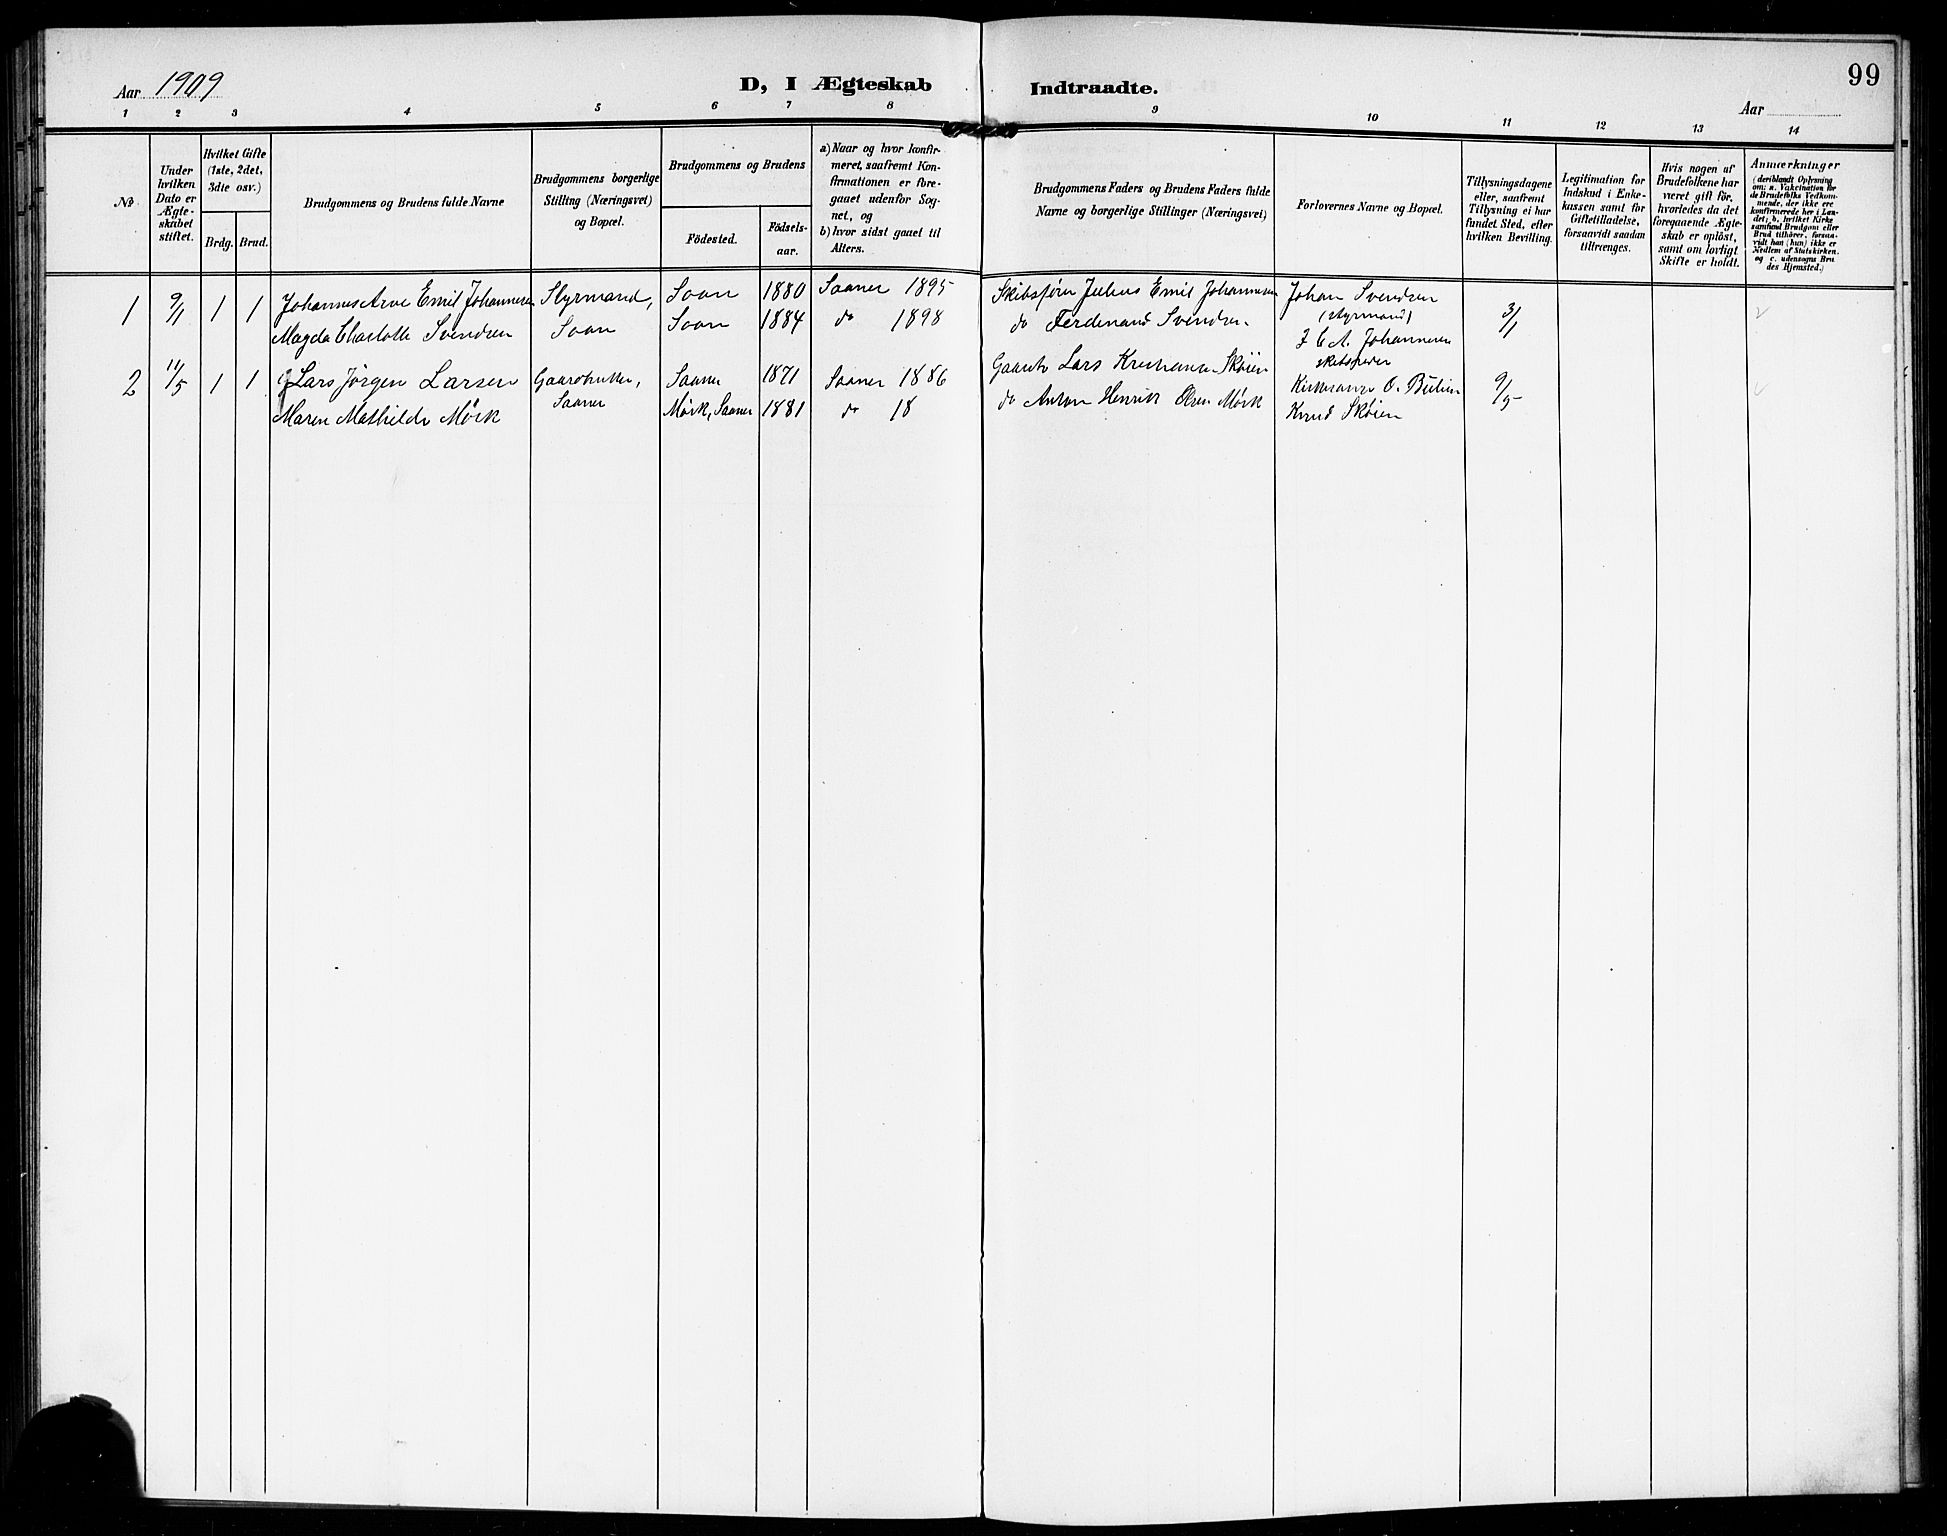 Aar 1909
D, I Ægteskab Indtraadte.
99
Aar
1 2 3 4 5 6 7 8 9 10 11 12 13 14
No.
Under
hvilken
Dato er
Ægte-
skabet
stiftet.
Hvilket Gifte
(1ste, 2det,
3die osv.)
Brdg. Brud.
Brudgommens og Brudens fulde Navne
Brudgommens borgerlige
Stilling (Næringsvei)
og Bopæl.
Brudgommens og Brudens
Födested.
Födsels-
aar.
a) Naar og hvor konfir-
meret, saafremt Kon-
firmationen er fore-
gaaet udenfor Sog-
net, og
b) hvor sidst gaaet til
Alters.
Brudgommens Faders og Brudens Faders fulde
Navne og borgerlige Stillinger (Næringsvei)
Forlovernes Navne og Bopæl.
Tillysningsdagene
eller, saafremt
Tillysning ei har
fundet Sted, efter
hvilken Bevilling.
Legitimation for
Indskud i Enke-
kassen samt for
Giftetilladelse,
forsaavidt saadan
tiltrænges.
Hvis nogen af
Brudefolkene har
været gift för,
hvorledes da det
foregaaende Ægte-
skab er oplöst,
samt om lovligt
Skifte er holdt.
Anmærkninger
(deriblandt Oplysning
om: a. Vakcination for
de Brudefolks Vedkom-
mende, der ikke ere
konfirmerede her i Lan-
det; b. hvilket Kirke
samfund Brudgom eller
Brud tilhører, forsaa-
vidt han (hun) ikke er
Medlem af Statskirken,
og c. udensogns Bru
des Hjemsted.)
1 9/1 1 1 Johannes Arve Emil Johannesen Styrmand, Soon 1880 Saaner 1895 Skibsfører Julius Emil Johannesen Johan Svendsen
(styrmand)
Magda Charlotte Svendsen Soon Soon 1884 do 1898 do Ferdinand Svendsen 3/1
J C A. Johannesen
skibsreder
2 11/5 1 1 Lars Jørgen Larsen Saaner 1871 Saaner 1886 Gaardb Lars Kristiansen Skøien Kirkesanger O. 9/5
Saaner
Maren Mathilde Mørk Mørk, Saaner 1881 do 18 do Anton Henrik Olsen Mørk Knud Skøien